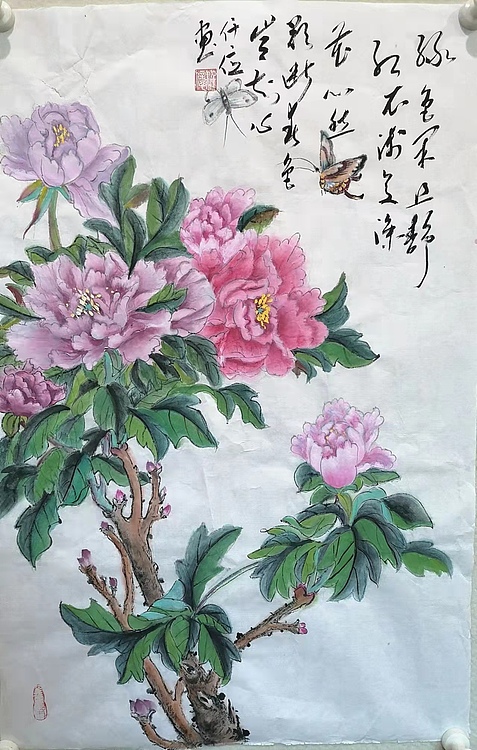 绿色闲且静
红衣浅复深
花心愁
欲断春色
岂知心
画